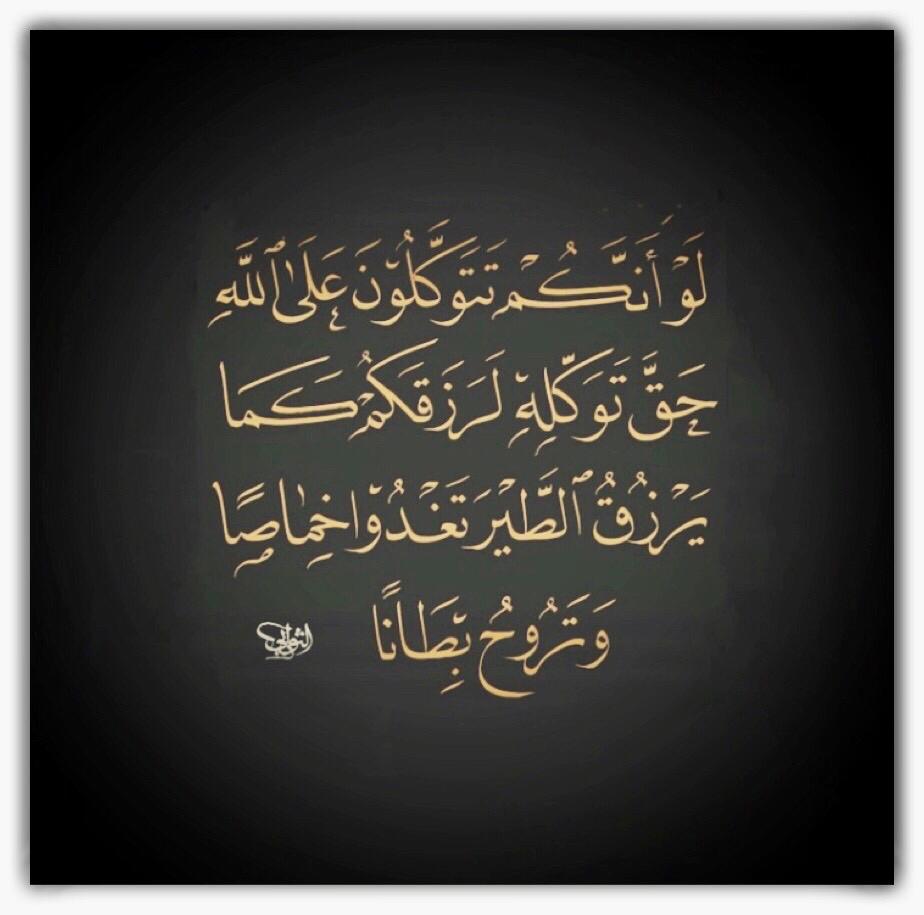 لَوْ أَنَّكُمْ تَتَوَكَّلُوْنَ عَلَى ٱللَّهِ
حَقَّ تَوَكُّلِهِ لَرَزَقَكُمْ كَمَا
يَرْزُقُ ٱلطَّيْرَ تَغْدُوْا خِمَاصًا
وَتَرُوحُ بِطَانًا